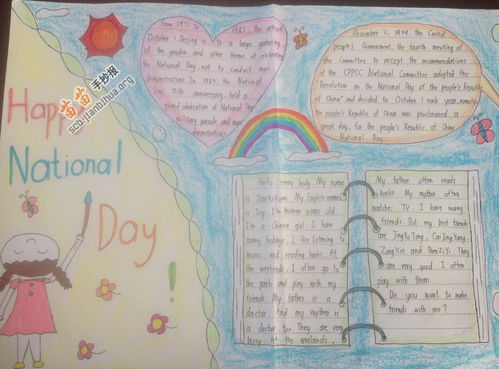 Happy
National
Day
!
苗苗手抄报
scb.jianbihua.org
From 1971 to 1983, The annual
October 1, Beijing is to a large gathering
of the garden, and other forms of celebrating
the National Day, not to conduct mass
demonstrations. In 1984, the National
Day, 35th anniversary, held a
grand celebration of National Day
military parade and mass
demonstrations.
December 2, 1949, the Central
people's Government, the fourth meeting of
the Committee to accept the recommendations
of the CPPCC National Committee adopted the
"Resolution on the National Day of the people's Republic
of China" and decided to October 1 each year, namely,
the people's Republic of China was proclaimed a
great day, for the people's Republic of China
National Day.
Hello, every body. My name
is My English name
is Ivy. I'm thirteen years old.
I'm a Chinese girl. I have
many hobbies. I like listening to
music and reading books. At
the weekends, I often go to
the park and play with my
friends. My father is a
doctor. And my mother is
a doctor, too. They are very
busy. At the weekends,
My father often reads
books. My mother often
watches TV. I have many
friends. But my best friends
are JingYuTong, CaiJingYang,
ZongXin and
They are very good. I often
play with them.
Do you want to make
friends with me?